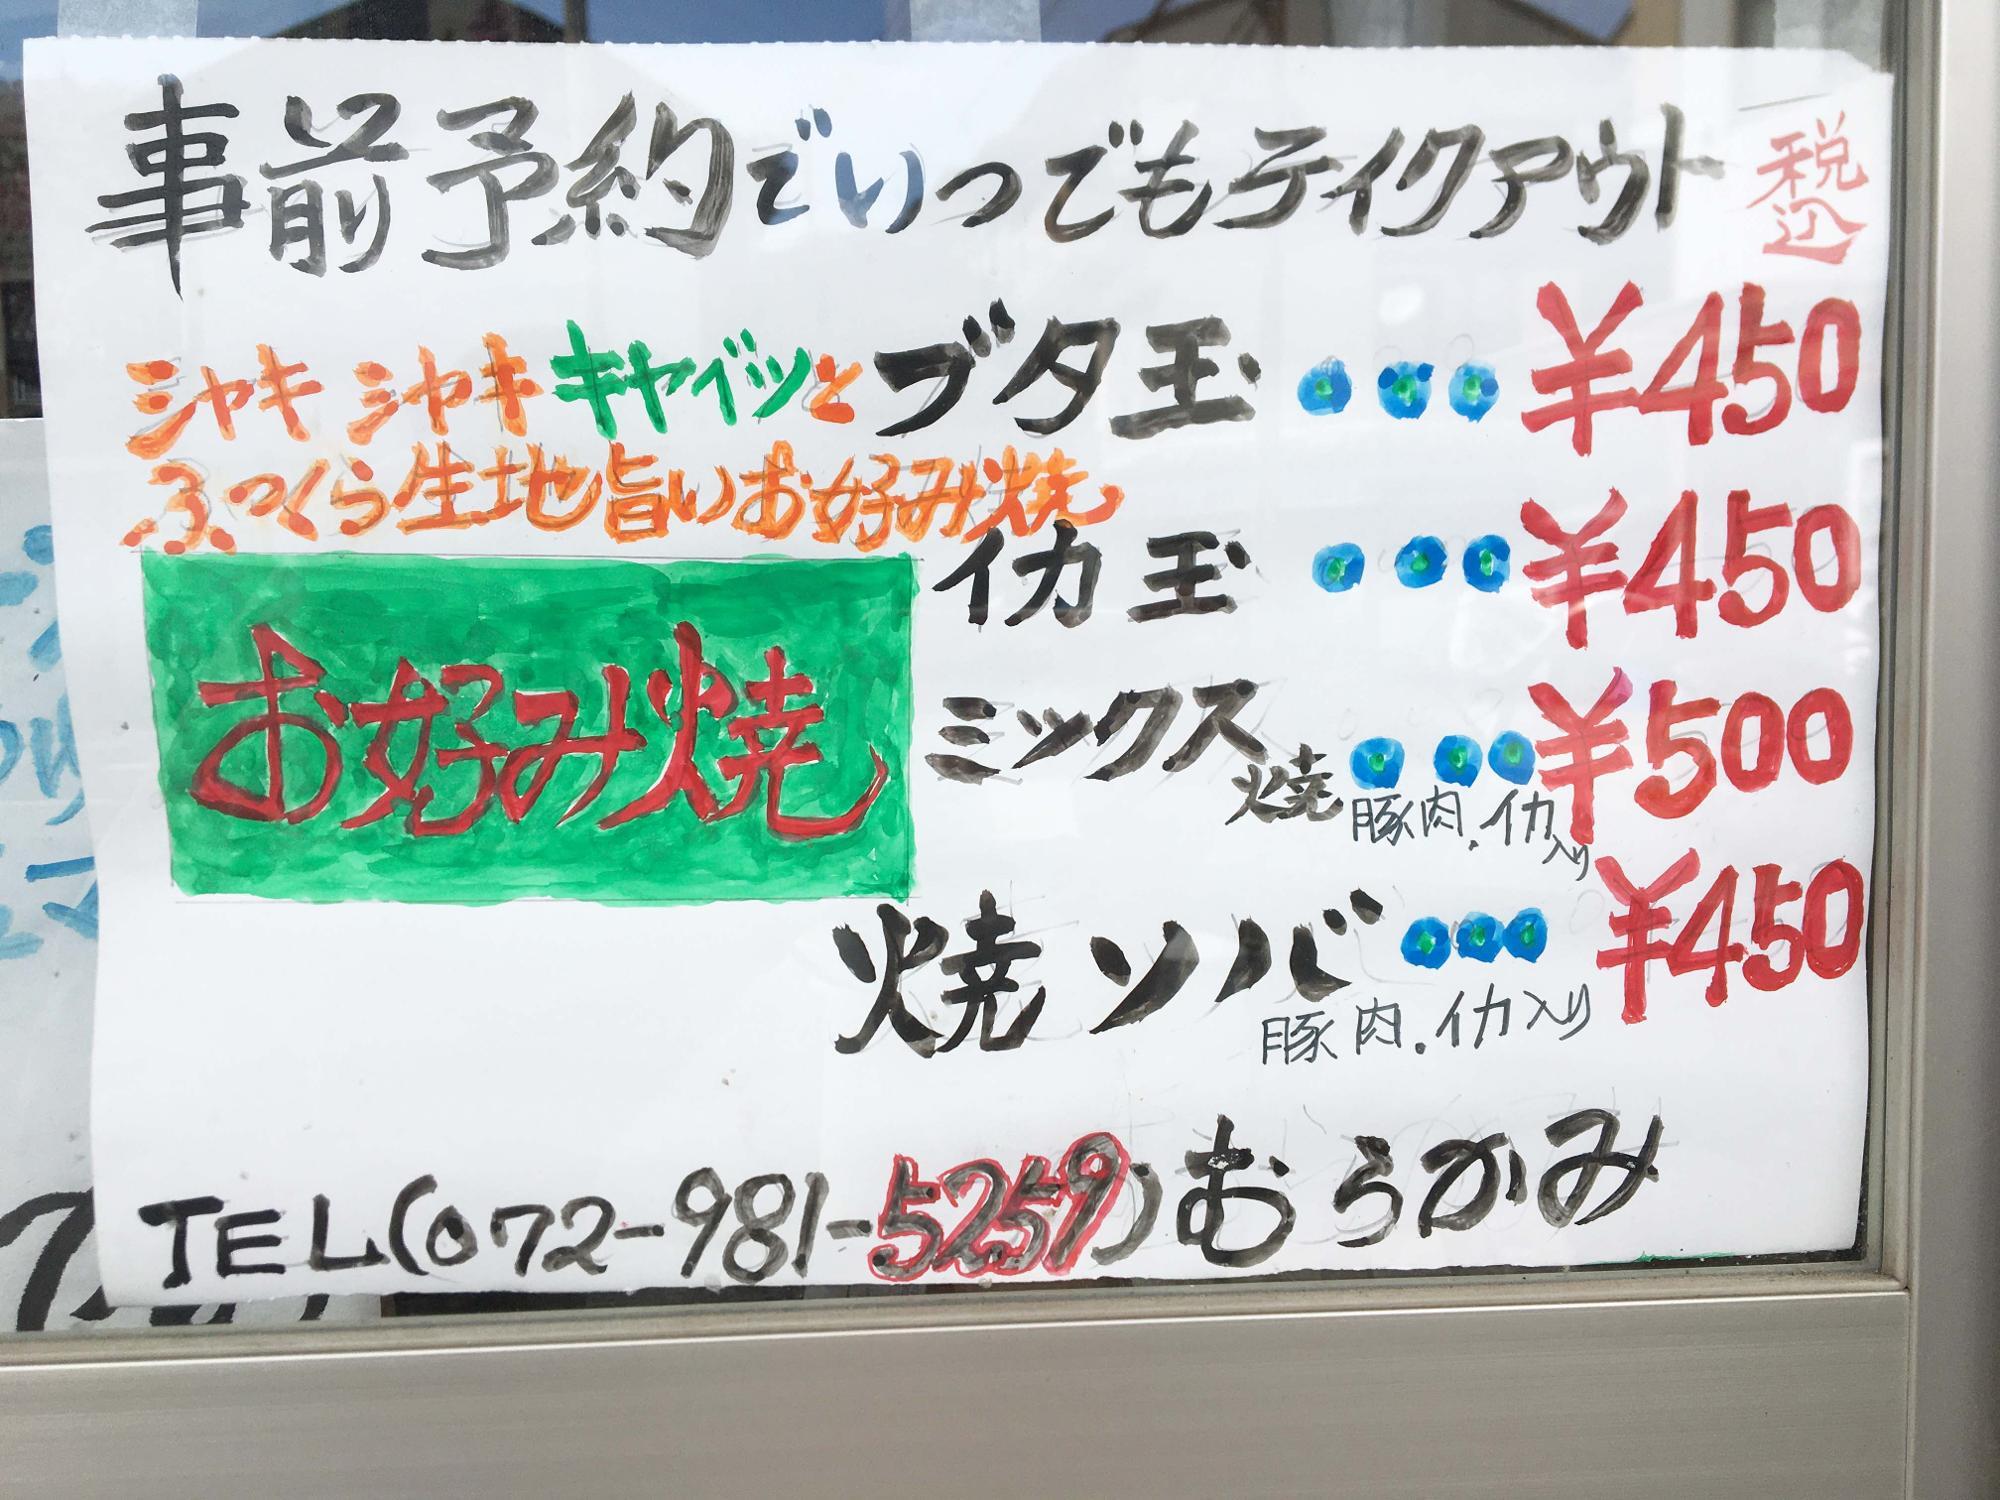 事前予約でいつでもテイクアウト 税込
シャキシャキキャベツと
ブタ玉・・・¥450
ふっくら生地旨いお好み焼
イカ玉・・・¥450
お好み焼
ミックス焼・・・¥500
豚肉.イカ入り
焼ソバ・・・¥450
豚肉.イカ入り
TEL(072-981-5259)むらかみ